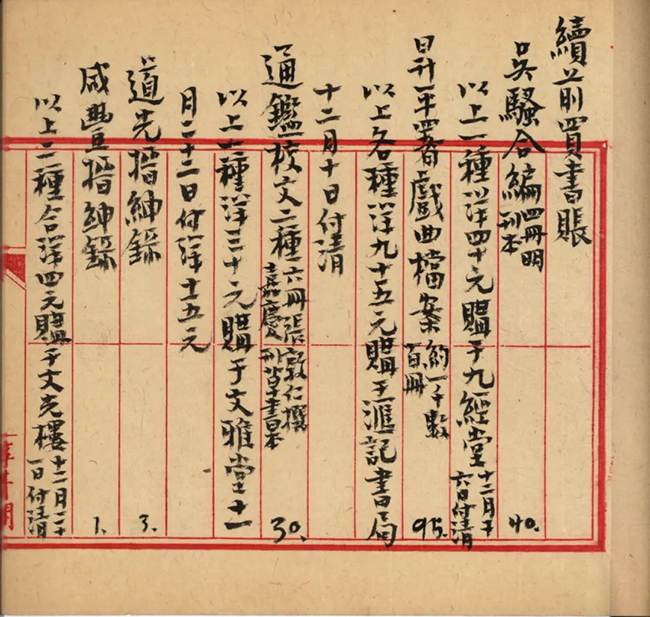 續前買書賬
吳騷合編 四冊明刊本 40.
以上一種洋四十元購于九經堂 十二月廿六日付清
昇平署戲曲檔案 約一千數百冊 95.
以上各種洋九十五元購滙記書局
十二月十日付清
通鑑校文二種 六冊張敦仁撰嘉慶刊草書本 30.
以上一種洋三十元購于文雅堂十一
月二十二日付洋十五元
道光搢紳錄 3.
咸豐搢紳錄 1.
以上二種合洋四元購于文光樓 十二月二十一日付清